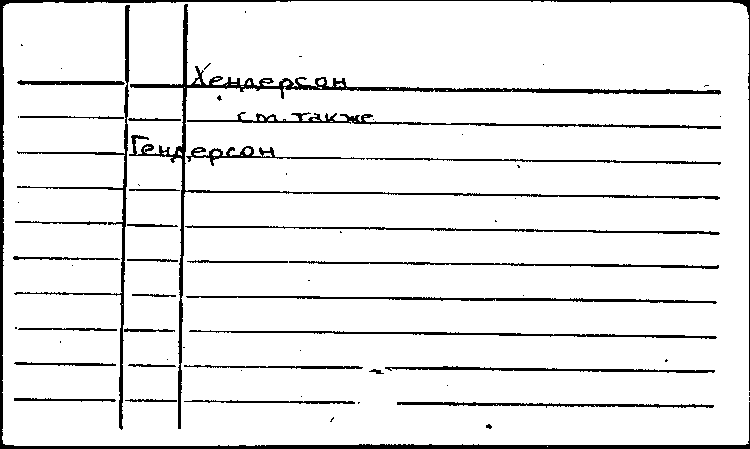 Хендерсон
см. также
Гендерсон